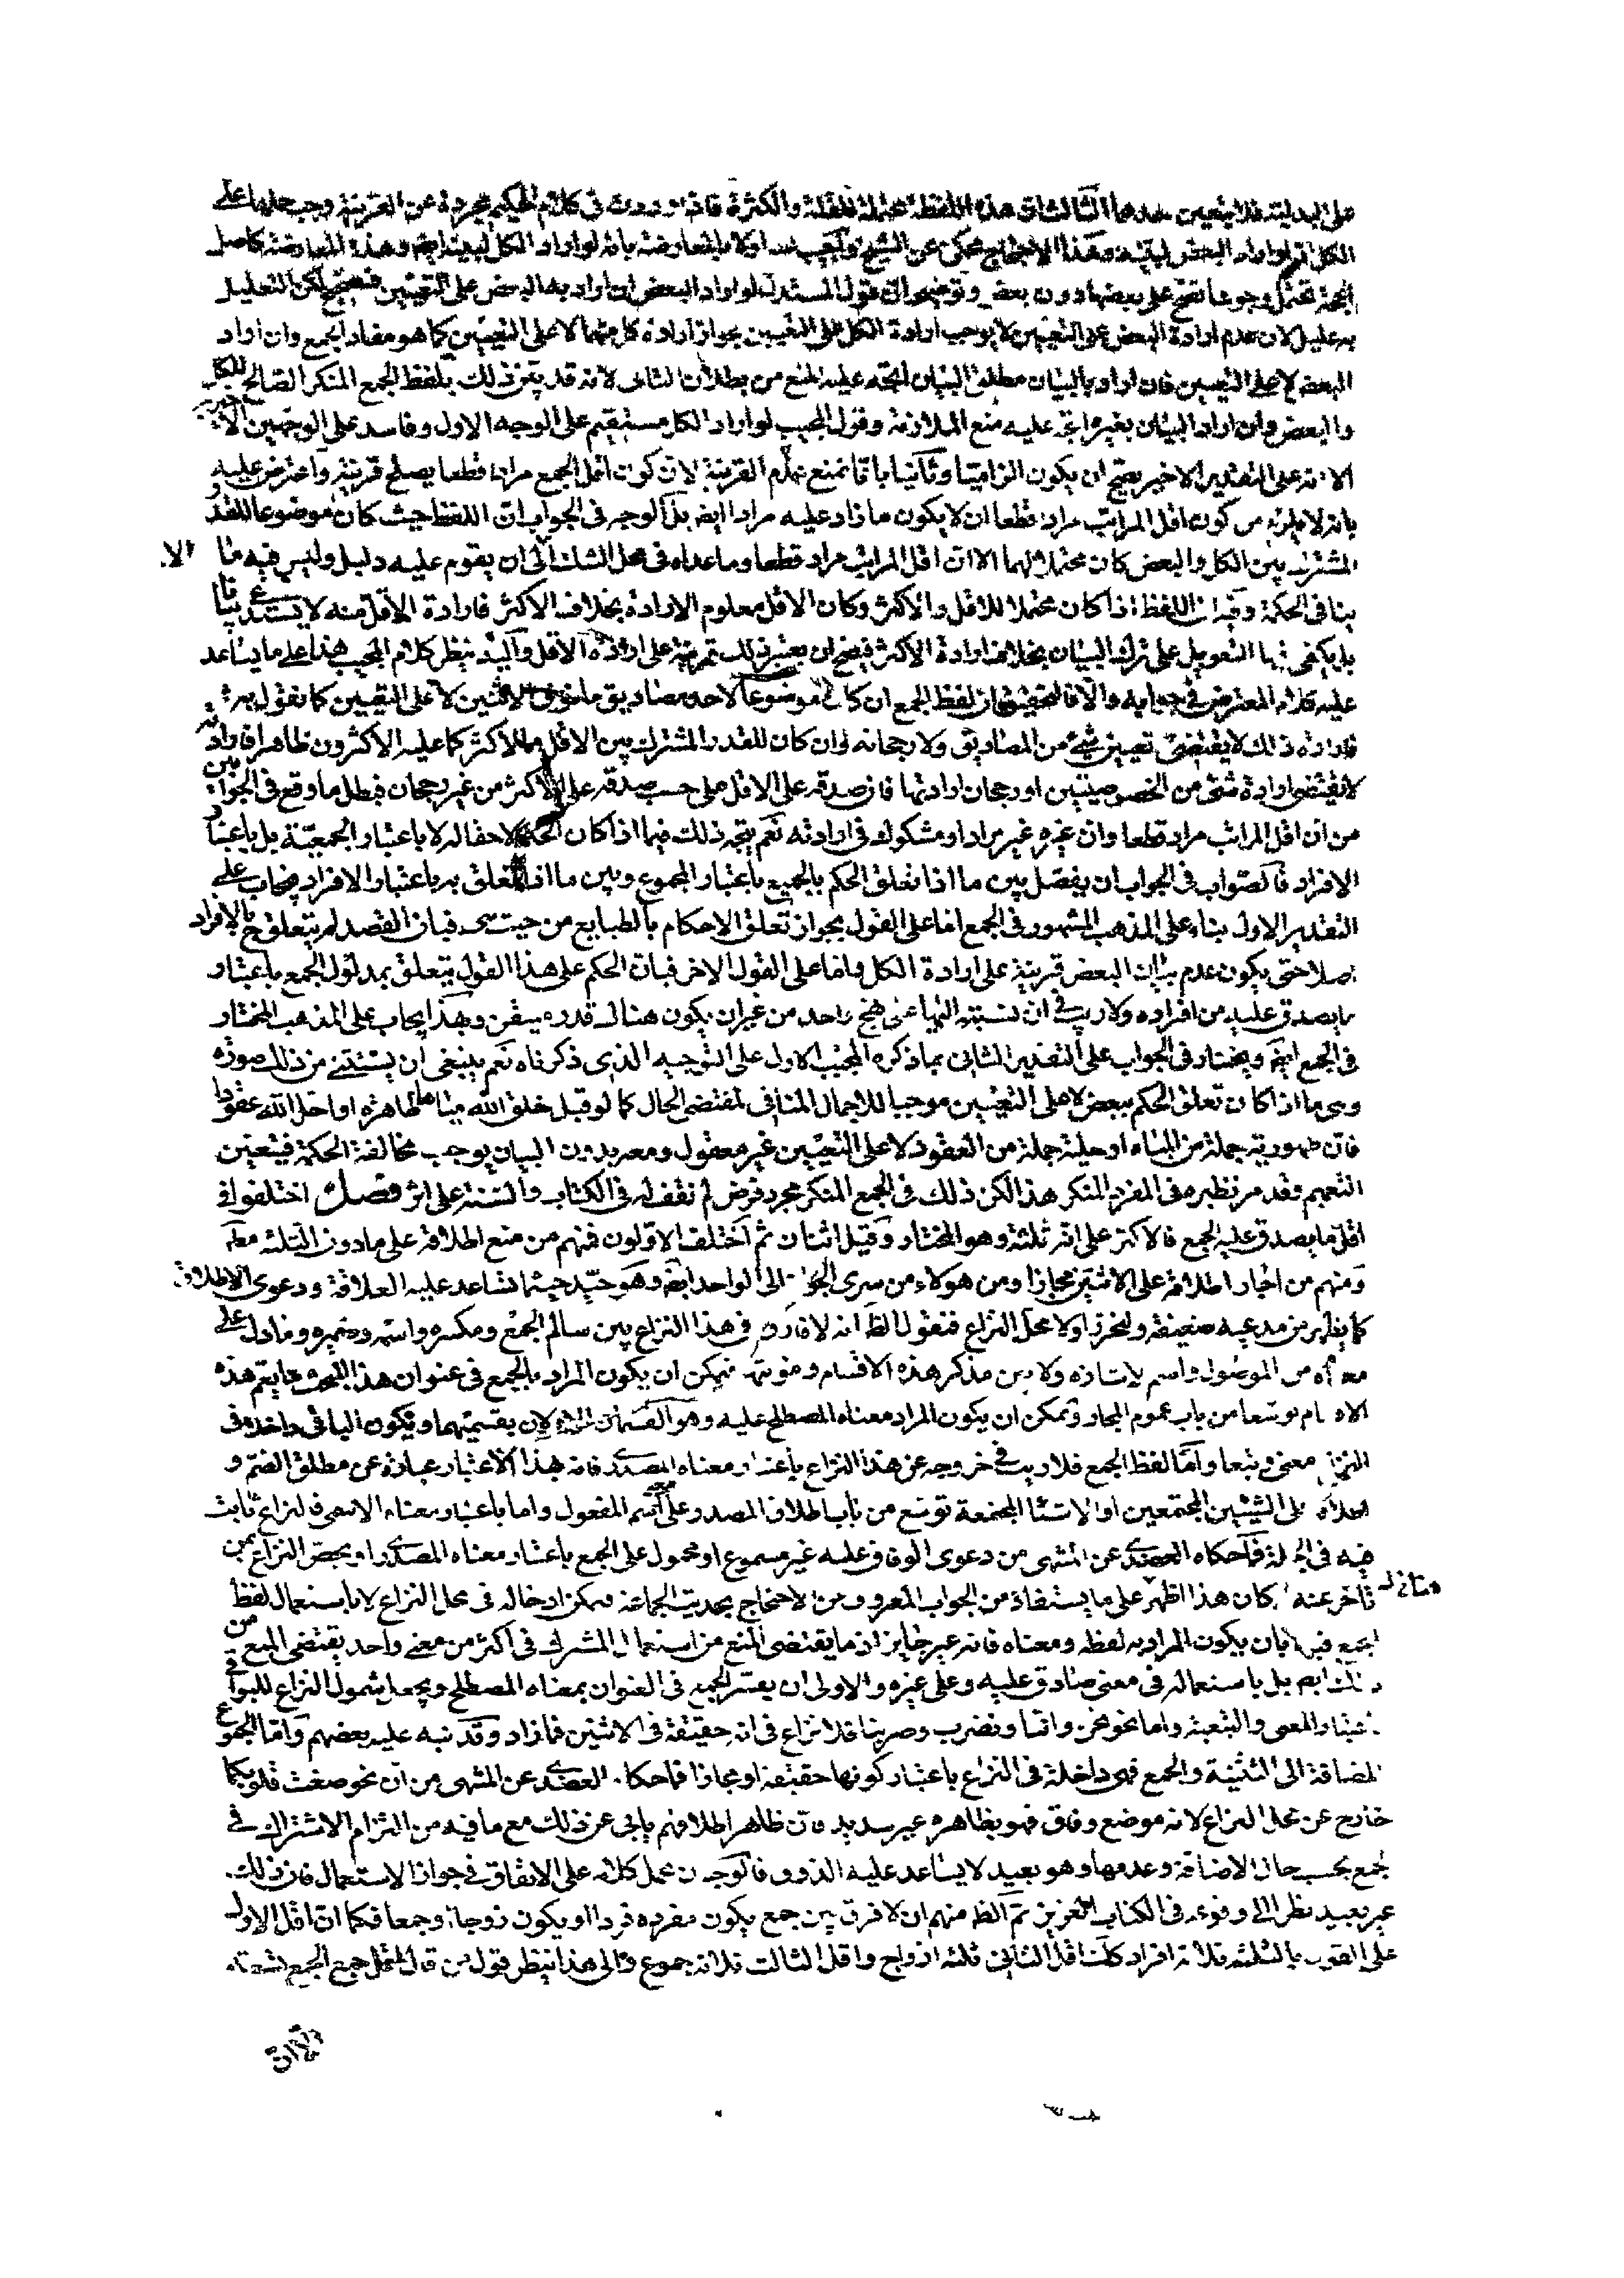 على البدلية فلا يتعين احدهما الثالث ان هذه اللفظة محتملة للقلة والكثرة فاذا وردت في كلام الحكيم مجردة عن القرينة وجب حملها على
الكل اذ لو اراد البعض لبينه وهذا الاحتجاج محكى عن الشيخ واجيب اولا بالمعارضة بانه لو اراد الكل لبينه ايضا وهذه المعارضة كاصل
الحجة تحتمل وجوها تصح على بعضها دون بعض وتوضيحه ان قول المستدل لو اراد البعض ان اراد به البعض على التعيين فصحيح لكن التعليل
به عليل لان عدم ارادة البعض على التعيين لا يوجب ارادة الكل على التعيين بجواز ارادة كل منهما لا على التعيين كما هو مفاد الجمع وان اراد
البعض لا على التعيين فان اراد بالبيان مطلق البيان اتجه عليه المنع من بطلان الثانى لانه قد بين ذلك بلفظ الجمع المنكر الصالح للكل
والبعض وان اراد البيان بغيره اتجه عليه منع الملازمة وقول المجيب لو اراد الكل مستقيم على الوجه الاول وفاسد على الوجهين الاخيرين
الا انه على التقدير الاخير يصح ان يكون الزاميا وثانيا بانا نمنع عدم القرينة لان كون اقل الجمع مرادا قطعا يصلح قرينة واعترض عليه
بانه لا يلزم من كون اقل المراتب مرادا قطعا ان لا يكون ما زاد عليه مرادا ايضا بل الوجه في الجواب ان اللفظ حيث كان موضوعا للقدر
المشترك بين الكل والبعض كان محتملا لهما الا ان اقل المراتب مراد قطعا وما عداه في محل الشك الى ان يقوم عليه دليل وليس فيه ما
ينافي الحكمة وفيه ان اللفظ اذا كان محتملا للاقل والاكثر وكان الاقل معلوم الارادة بخلاف الاكثر فارادة الاقل منه لا يستدعى بيانا
بل يكفى فيها التعويل على ترك البيان بخلاف ارادة الاكثر فيصح ان يعتبر ذلك قرينة على ارادة الاقل واليه ينظر كلام المجيب هذا على ما يساعد
عليه كلام المعترض في جوابه والا فالتحقيق ان لفظ الجمع ان كان موضوعا لاحد مصاديق ما فوق الاثنين لا على التعيين كما نقول به
فارادة ذلك لا يقتضى تعيين شئ من المصاديق ولا رجحانه وان كان للقدر المشترك بين الاقل والاكثر كما عليه الاكثرون ظاهرا فارادته
لا تقتضى ارادة شئ من الخصوصيتين او رجحان ارادتها فان صدقه على الاقل على حسب صدقه على الاكثر من غير رجحان فبطل ما وقع في الجوابين
من ان اقل المراتب مراد قطعا وان غيره غير مراد او مشكوك في ارادته نعم يتجه ذلك فيما اذا كان الحكم لاحقا له لا باعتبار الجمعية بل باعتبار
الافراد فالصواب في الجواب ان يفصل بين ما اذا تعلق الحكم بالجميع باعتبار المجموع وبين ما اذا تعلق به باعتبار الافراد فيجاب على
التقدير الاول بناء على المذهب المشهور في الجمع اما على القول بجواز تعلق الاحكام بالطبايع من حيث هى فبان القصد لم يتعلق ح بالافراد
اصلا حتى يكون عدم بيان البعض قرينة على ارادة الكل واما على القول الاخر فبان الحكم على هذا القول يتعلق بمدلول الجمع باعتبار
ما يصدق عليه من افراده ولا ريب في ان نسبته اليها على نهج واحد من غير ان يكون هناك قدر متيقن وبهذا يجاب على المذهب المختار
في الجمع ايضا ويختار في الجواب على التقدير الثانى بما ذكره المجيب الاول على التوجيه الذى ذكرناه نعم ينبغى ان يستثنى من ذلك صورة
وهى ما اذا كان تعلق الحكم ببعض لا على التعيين موجبا للاجمال المنافى لمقتضى الحال كما لو قيل خلق الله مياها طاهرة او احل الله عقودا
فان طهورية جملة من المياه او حلية جملة من العقود لا على التعيين غير معقول ومعه بدون البيان يوجب مخالفة الحكمة فيتعين
التعميم وقد مر نظيره في المفرد المنكر هذا لكن ذلك في الجمع المنكر مجرد فرض لم نقف له في الكتاب والسنة على اثر فصل اختلفوا في
اقل ما يصدق عليه الجمع فالاكثر على انه ثلثة وهو المختار وقيل اثنان ثم اختلف الاولون فمنهم من منع اطلاقه على ما دون الثلثه مطلقا
ومنهم من اجاز اطلاقه على الاثنين مجازا ومن هؤلاء من سرى الجواز الى الواحد ايضا وهو جيد حيثما تساعد عليه العلاقة ودعوى الاطلاق
كما يظهر من مدعيه ضعيفة ولنحرر اولا محل النزاع فنقول الظ انه لا فارق في هذا النزاع بين سالم الجمع ومكسره واسمه وضميره وما دل على
معناه من الموصول واسم الاشارة ولا بين مذكر هذه الاقسام ومؤنثه فيمكن ان يكون المراد بالجمع في عنوان هذا المبحث ما يعم هذه
الاقسام توسعا من باب عموم المجاز ويمكن ان يكون المراد معناه المصطلح عليه وهو القسمان الاولان بقسميهما ويكون الباقى داخلا في
النزاع معنى وتبعا واما لفظ الجمع فلا ريب في خروجه عن هذا النزاع باعتبار معناه المصدرى فانه بهذا الاعتبار عبارة عن مطلق الضم و
اطلاقه على الشيئين المجتمعين او الاشياء المجتمعة توسع من باب اطلاق المصدر على اسم المفعول واما باعتبار معناه الاسمى فالنزاع ثابت
فيه في الجملة فما حكاه العضدى عن المنتهى من دعوى الوفاق عليه غير مسموع او محمول على الجمع باعتبار معناه المصدرى او يخص النزاع بمن
تاخر عنه وكان هذا اظهر على ما يستفاد من الجواب المعروف من الاحتجاج بحديث الجماعة ويمكن ادخاله في محل النزاع لا باستعمال لفظ
الجمع فيه بان يكون المراد به لفظه ومعناه فانه غير جايز اذ ما يقتضى المنع من استعمال المشترك في اكثر من معنى واحد يقتضى المنع من
ذلك ايضا بل باستعماله في معنى صادق عليه وعلى غيره والاولى ان يعتبر الجمع في العنوان بمعناه المصطلح ويجعل شمول النزاع للبواقى
باعتبار المعنى والتبعية واما نحو نحن وانا ونضرب وضربنا فلا نزاع في انه حقيقة في الاثنين فما زاد وقد نبه عليه بعضهم واما الجموع
المضافة الى التثنية والجمع فهى داخلة في النزاع باعتبار كونها حقيقة او مجازا فما حكاه العضدى عن المنتهى من ان نحو صغت قلوبكما
خارج عن محل النزاع لانه موضع وفاق فهو بظاهره غير سديد فان ظاهر اطلاقهم يابى عن ذلك مع ما فيه من التزام الاشتراك في
الجمع بحسب حال الاضافة وعدمها وهو بعيد لا يساعد عليه الذوق فالوجه ان يحمل كلامه على الاتفاق في جواز الاستعمال فان ذلك
غير بعيد نظرا الى وقوعه في الكتاب العزيز ثم الظ منهم ان لا فرق بين جمع يكون مفرده فردا او يكون زوجا او جمعا فكما ان اقل الاول
على القول بالثلثه ثلاثة افراد كك اقل الثانى ثلثة ازواج واقل الثالث ثلاثة جموع والى هذا ينظر قول من قال اقل جمع الجمع تسعة
الا ان